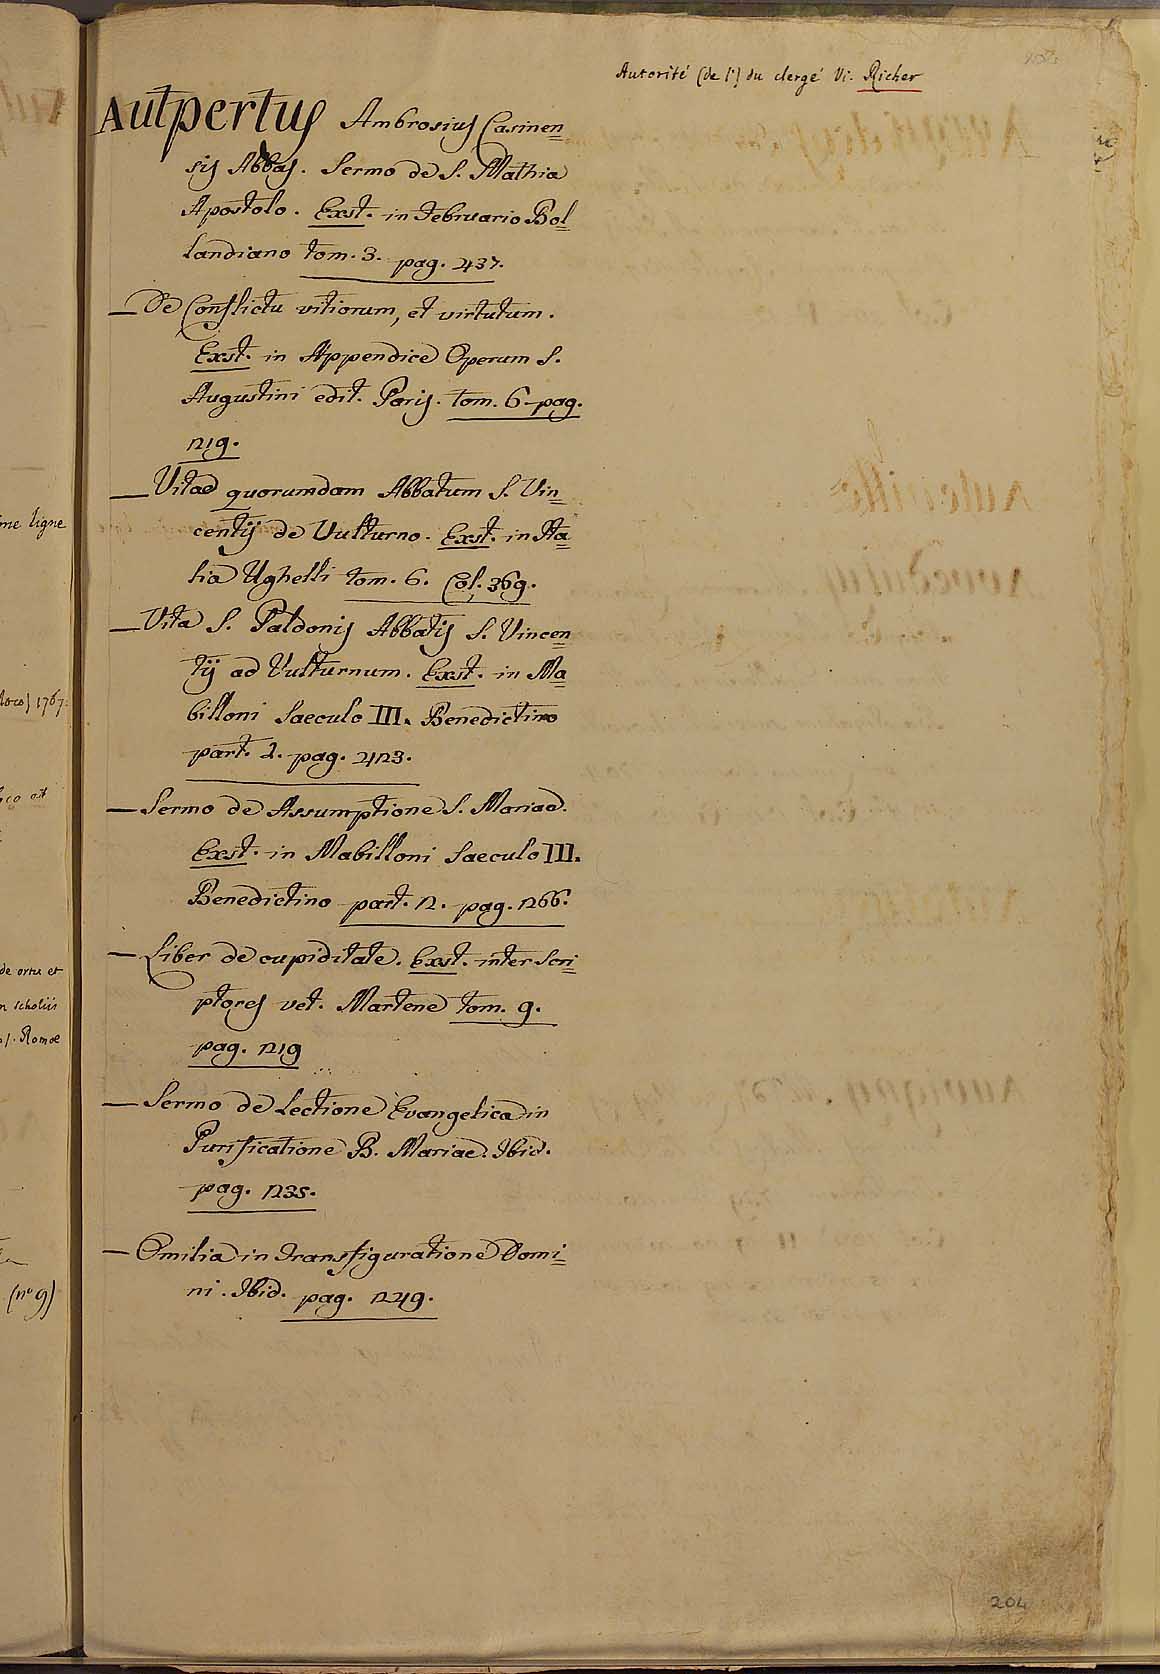 Autorité (de l') du clergé Vi. Richer
Autpertus Ambrosius Casinen=
sis Abbas. Sermo de S. Mathia
Apostolo. Exst. in Februario Bol=
landiano tom. 3. pag. 437.
— De Conflictu vitiorum, et virtutum.
Exst. in Appendice Operum S.
Augustini edit. Paris. tom. 6. pag.
219.
— Vitae quorumdam Abbatum S. Vin=
centij de Vulturno. Exst. in Ita=
lia Ughelli tom. 6. Col. 369.
— Vita S. Paldonis Abbatis S. Vincen=
tij ad Vulturnum. Exst. in Ma=
billoni Saeculo III. Benedictino
part. 2. pag. 423.
— Sermo de Assumptione S. Mariae.
Exst. in Mabilloni Saeculo III.
Benedictino part. 2. pag. 266.
— Liber de cupiditate. Exst. inter Scri=
ptores vet. Martene tom. 9.
pag. 219
— Sermo de Lectione Evangelica in
Purificatione B. Mariae. Ibid.
pag. 235.
— Omilia in Transfiguratione Domi=
ni. Ibid. pag. 249.
204
ligne
1767.
de ortu et
scholiis
Romae
(n° 9)